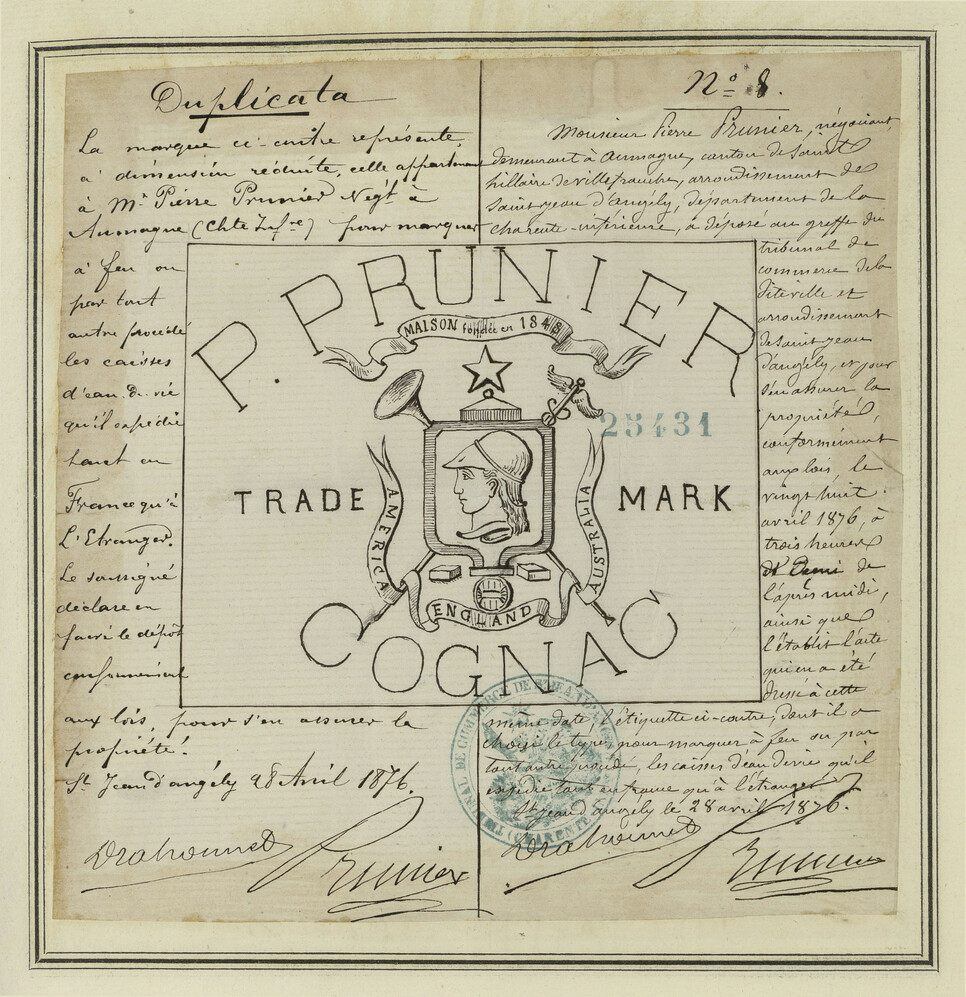 Duplicata
La marque ci-contre représente,
à dimension réduite, celle appartenant
à Mr Pierre Prunier Negt à
Aumagne (Chte Infre) pour marquer
à feu ou
par tout
autre procédé
les caisses
d'eau-de-vie
qu'il expédie
tant en
France qu'à
L'Etranger.
Le soussigné
déclare en
faire le dépôt
conformément
aux lois, pour s'en assurer la
propriété.
St Jean d'angély 28 Avril 1876.
Prunier
No 8.
Monsieur Pierre Prunier, négociant,
demeurant à Aumagne, canton de Saint
hillaire de villefranche, arrondissement de
Saint-jean d'angély, département de la
charente-inférieure, a déposé au greffe du
tribunal de
commerce de la
dite ville et
arrondissement
de Saint jean
d'angély, et pour
s'en assurer la
propriété,
conformément
aux lois, le
vingt huit
avril 1876, à
trois heures
et demi de
l'après midi,
ainsi que
l'établit l'acte
qui en a été
dressé à cette
même date, l'étiquette ci-contre, dont il a
choisi le type, pour marquer à feu ou par
tout autre procédé, les caisses d'eau de vie qu'il
expédie tant en france qu'à l'étranger.
St jean d'angély le 28 avril 1876.
Prunier
P. PRUNIER
MAISON fondée en 1848
25431
TRADE MARK
AMERICA
AUSTRALIA
ENGLAND
COGNAC